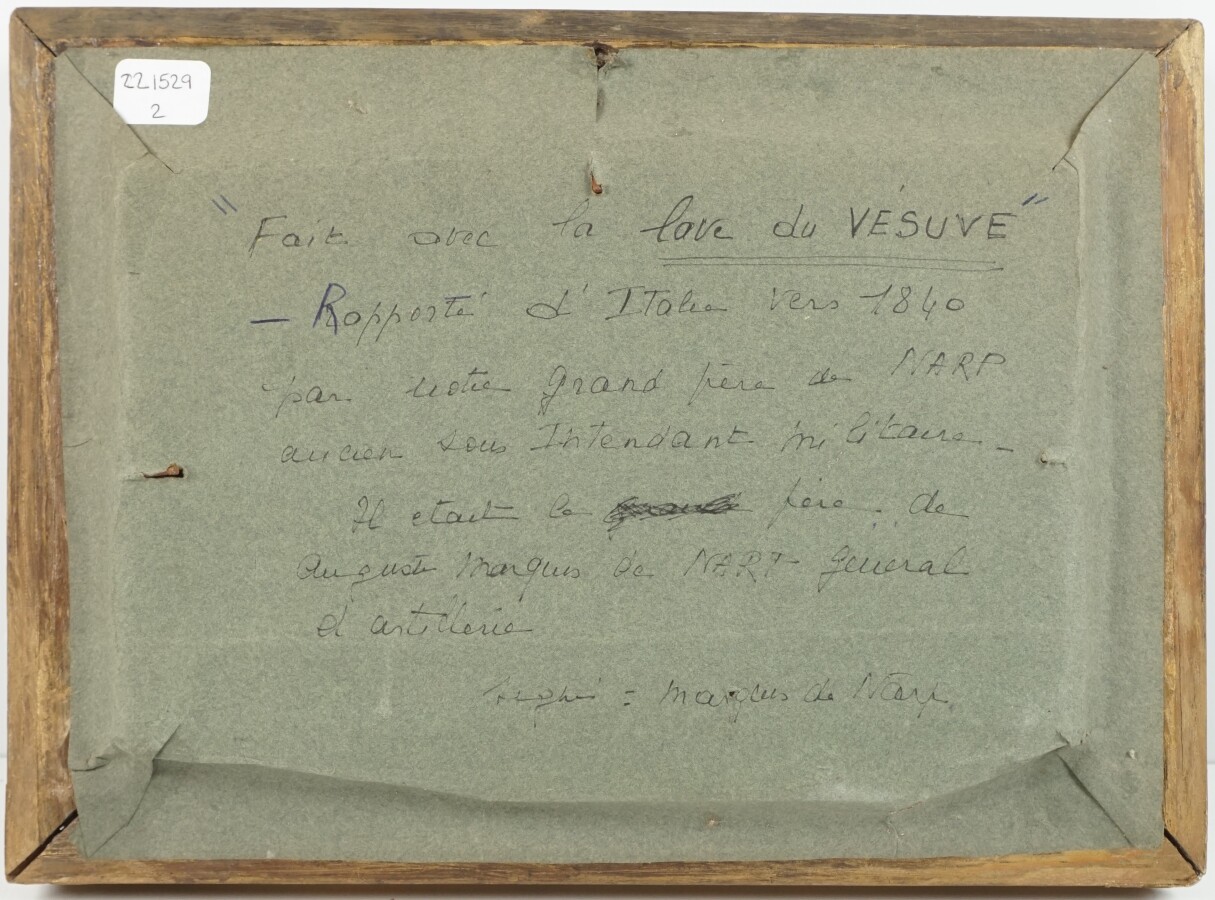 221529
2
"Fait avec la lave du VÉSUVE"
— Rapporté d'Italie vers 1840
par notre grand père de NARP
ancien sous Intendant militaire -
Il etait le père de
Auguste Marquis de NARP General
d'artillerie
signé : Marquis de Narp